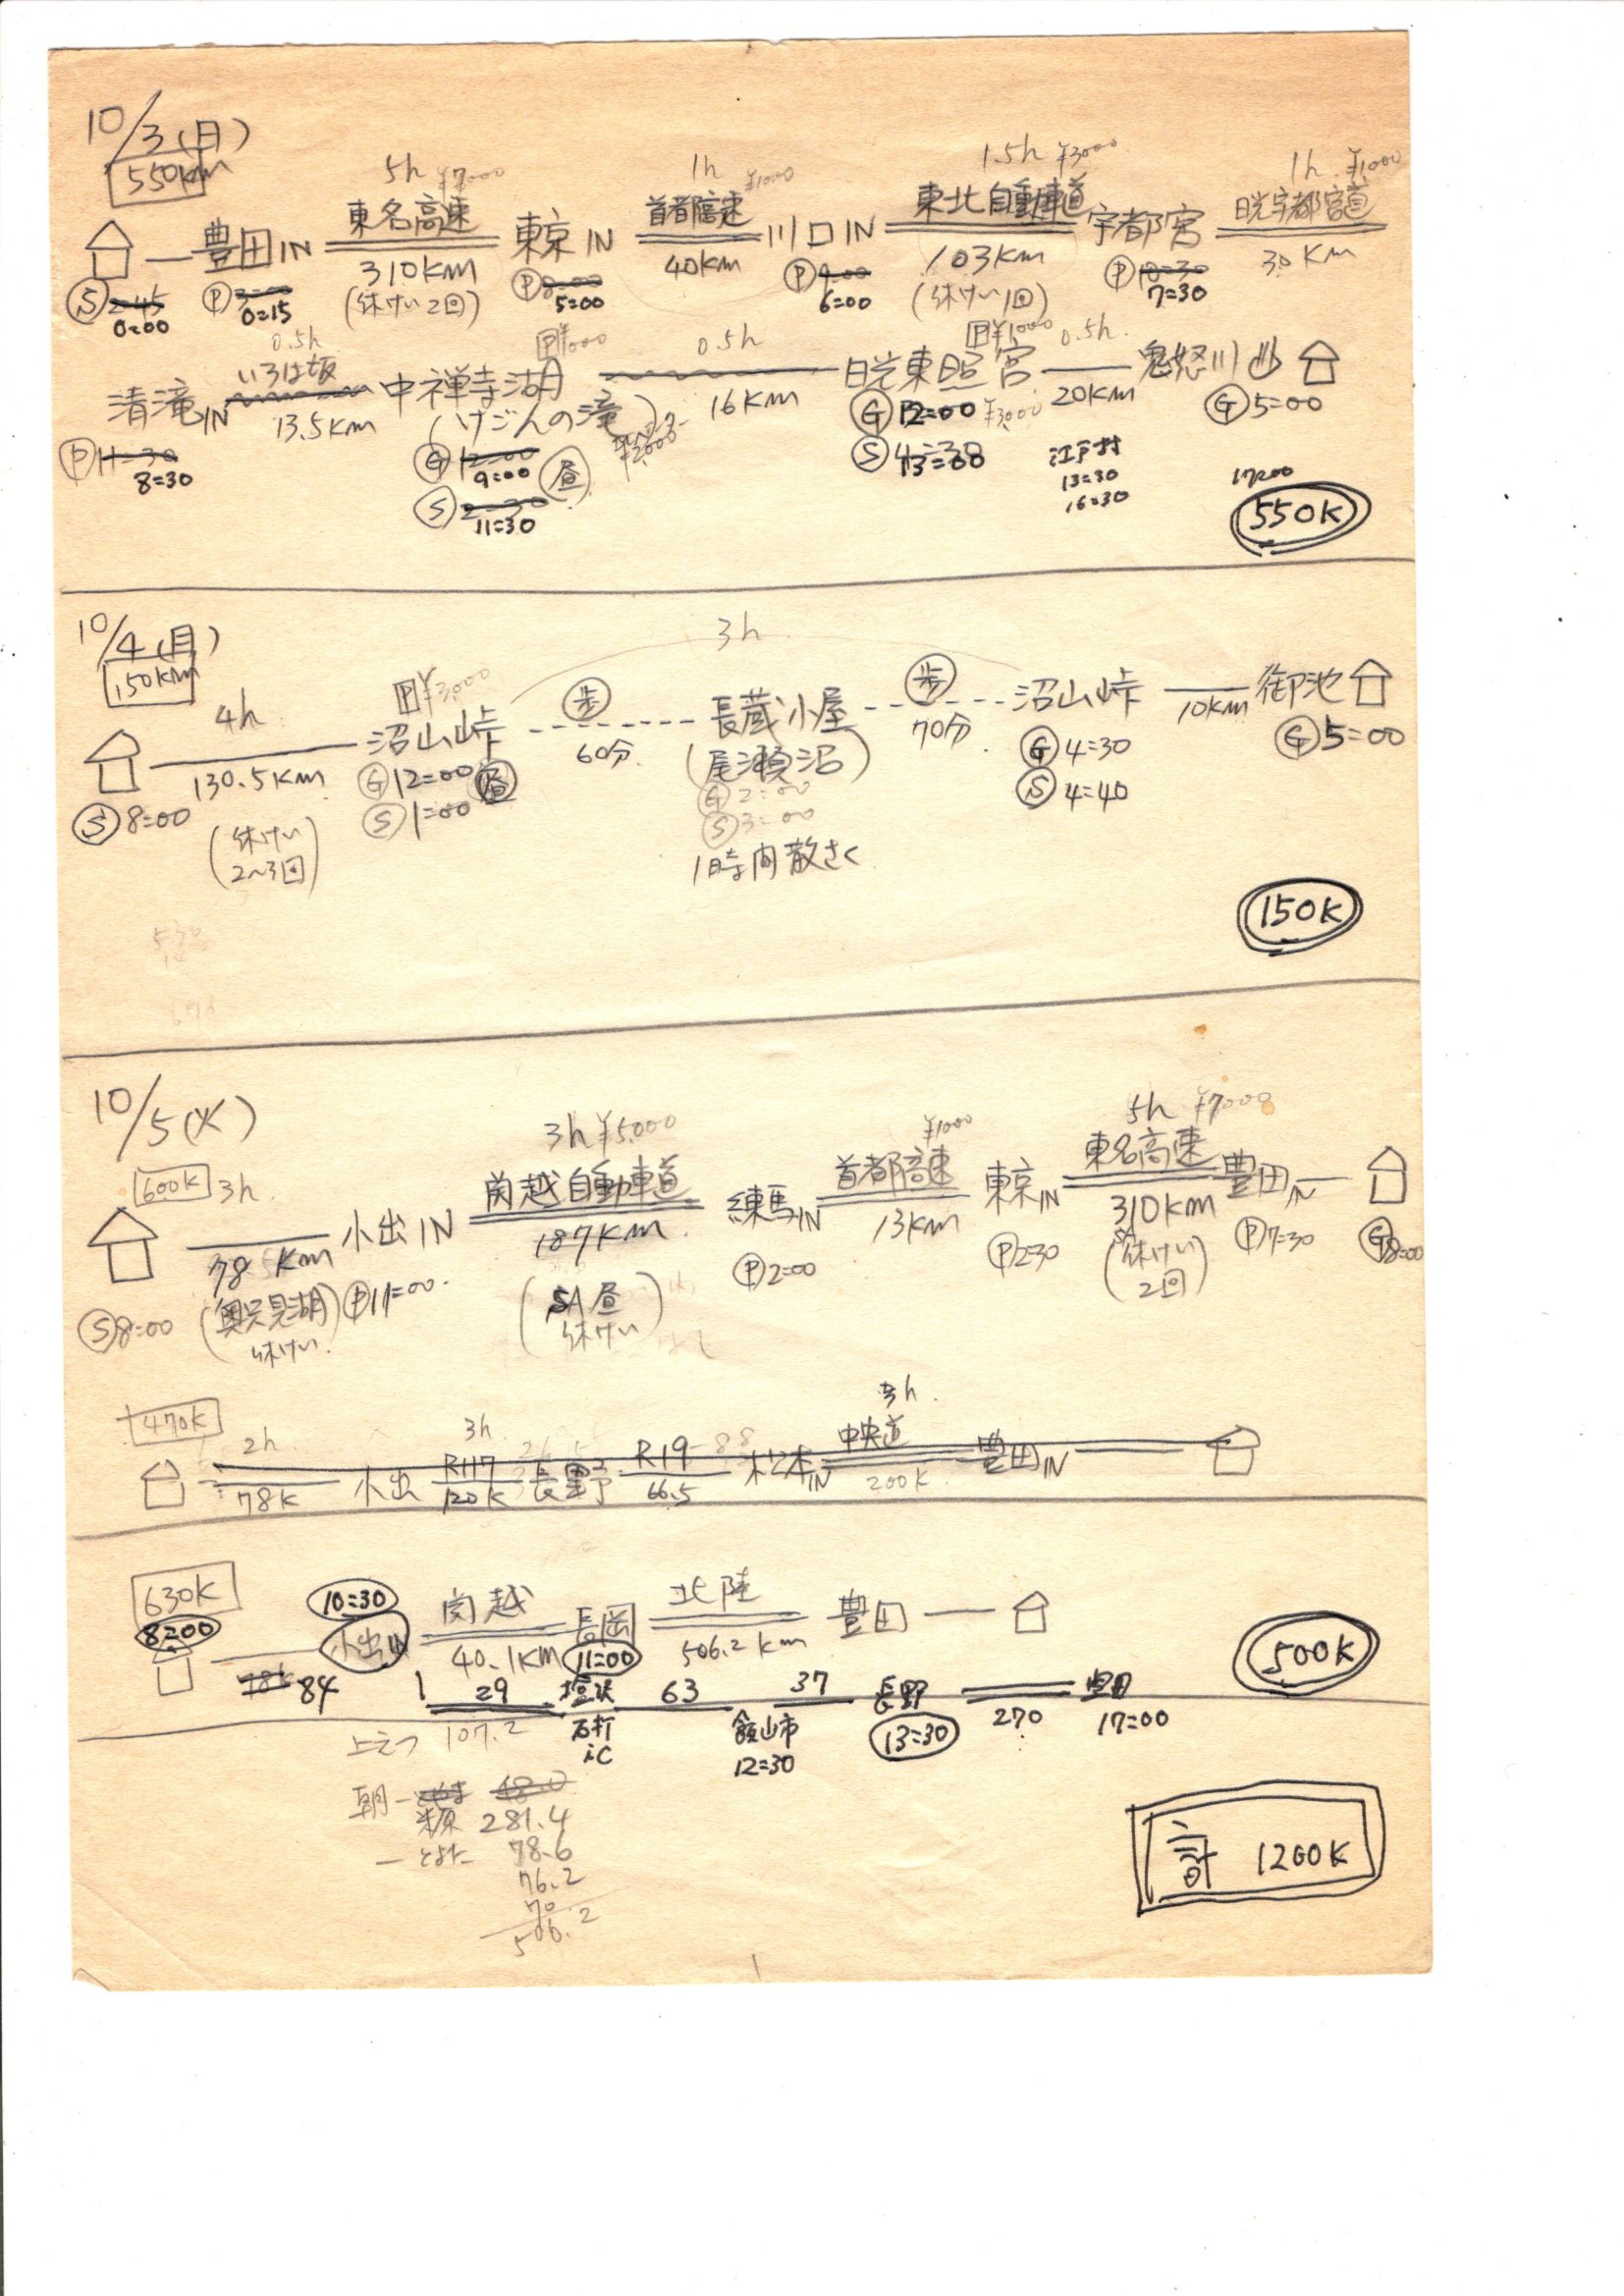 10/3(月)
550km
5h ¥7000 1h ¥1000 1.5h ¥3000 1h ¥1000
豊田IN 東名高速 東京IN 首都高速 川口IN 東北自動車道 宇都宮 日光宇都宮道
310km 40km 103km 30km
(休けい2回) (休けい1回)
Ⓢ 2=45 Ⓟ 3=00 Ⓟ 8=00 Ⓟ 9=00 Ⓟ 10=30
0=00 0=15 5=00 6=00 7=30
0.5h P¥1000 0.5h P¥1000 0.5h
清滝IN いろは坂 中禅寺湖 日光東照宮 鬼怒川
13.5km (けごんの滝) 16km 20km
¥2000 ¥3000
Ⓟ 11=30 Ⓖ 12=00 昼 Ⓖ 12=00 Ⓖ 5=00
8=30 9=00 Ⓢ 13=00 江戸村
Ⓢ 2=30 13=30 17=00
11=30 16=30
550K
10/4(月)
150km
3h
4h P¥3000 歩 歩
沼山峠 長蔵小屋 沼山峠 御池
130.5km 60分 (尾瀬沼) 70分 10km
Ⓢ 8=00 Ⓖ 12=00 昼 Ⓖ 2=00 Ⓖ 4=30 Ⓖ 5=00
(休けい Ⓢ 1=00 Ⓢ 3=00 Ⓢ 4=40
2~3回) 1時間散さく
150K
10/5(火)
600K 3h 3h ¥5000 ¥1000 5h ¥7000
小出IN 関越自動車道 練馬IN 首都高速 東京IN 東名高速 豊田IN
78km 187km 13km 310km
Ⓢ 8=00 (奥只見湖) Ⓟ 11=00 (SA昼 Ⓟ 2=00 Ⓟ 2=30 (休けい Ⓟ 7=30 Ⓖ 8=00
休けい 休けい) 2回)
470K
2h 3h 3h
小出 R117 長野 R19 松本IN 中央道 豊田IN
78K 120K 66.5 200K
630K 10=30
8=00 小出IN 関越 長岡 北陸 豊田
78K 84 40.1km 11=00 506.2km
500K
29 塩沢 63 37 長野 豊田
石打 飯山市 13=30 270 17=00
iC 12=30
107.2
朝一 48.0
米原 281.4
一とよた 78.6
76.2
70
506.2
計 1200K